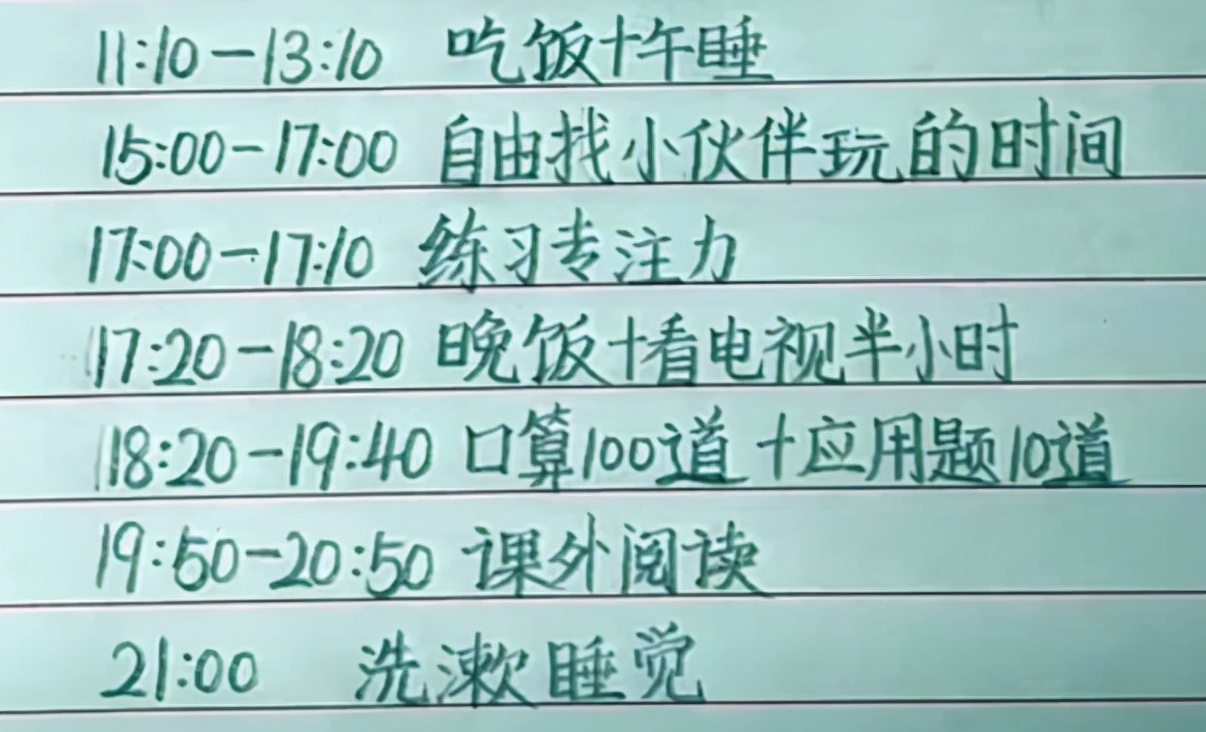 11:10-13:10 吃饭+午睡
15:00-17:00 自由找小伙伴玩的时间
17:00-17:10 练习专注力
17:20-18:20 晚饭+看电视半小时
18:20-19:40 口算100道+应用题10道
19:50-20:50 课外阅读
21:00 洗漱睡觉